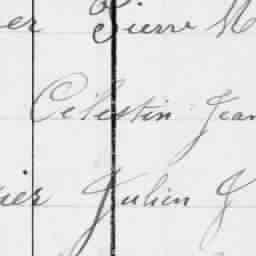 er Pierre M
Célestin Jean
ier Julien J